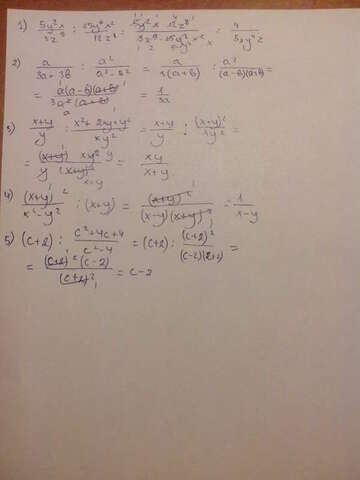 1) 5y²x/3z⁹ : 25y⁶x²/12z⁸ = 5y²x · 12z⁸/3z⁹ · 25y⁶x² = 4/5xy⁴z
2) a/3a+3b : a²/a²-b² = a/3(a+b) : a²/(a-b)(a+b) =
= a(a-b)(a+b)/3a²(a+b) = 1/3a
3) x+y/y : x²+2xy+y²/xy² = x+y/y : (x+y)²/xy² =
= (x+y) xy²/y (x+y)² = xy/x+y
4) (x+y)²/x²-y² : (x+y) = (x+y)²/(x-y)(x+y)² = 1/x-y
5) (c+2) : c²+4c+4/c²-4 = (c+2) : (c+2)²/(c-2)(c+2) =
= (c+2)²(c-2)/(c+2)² = c-2